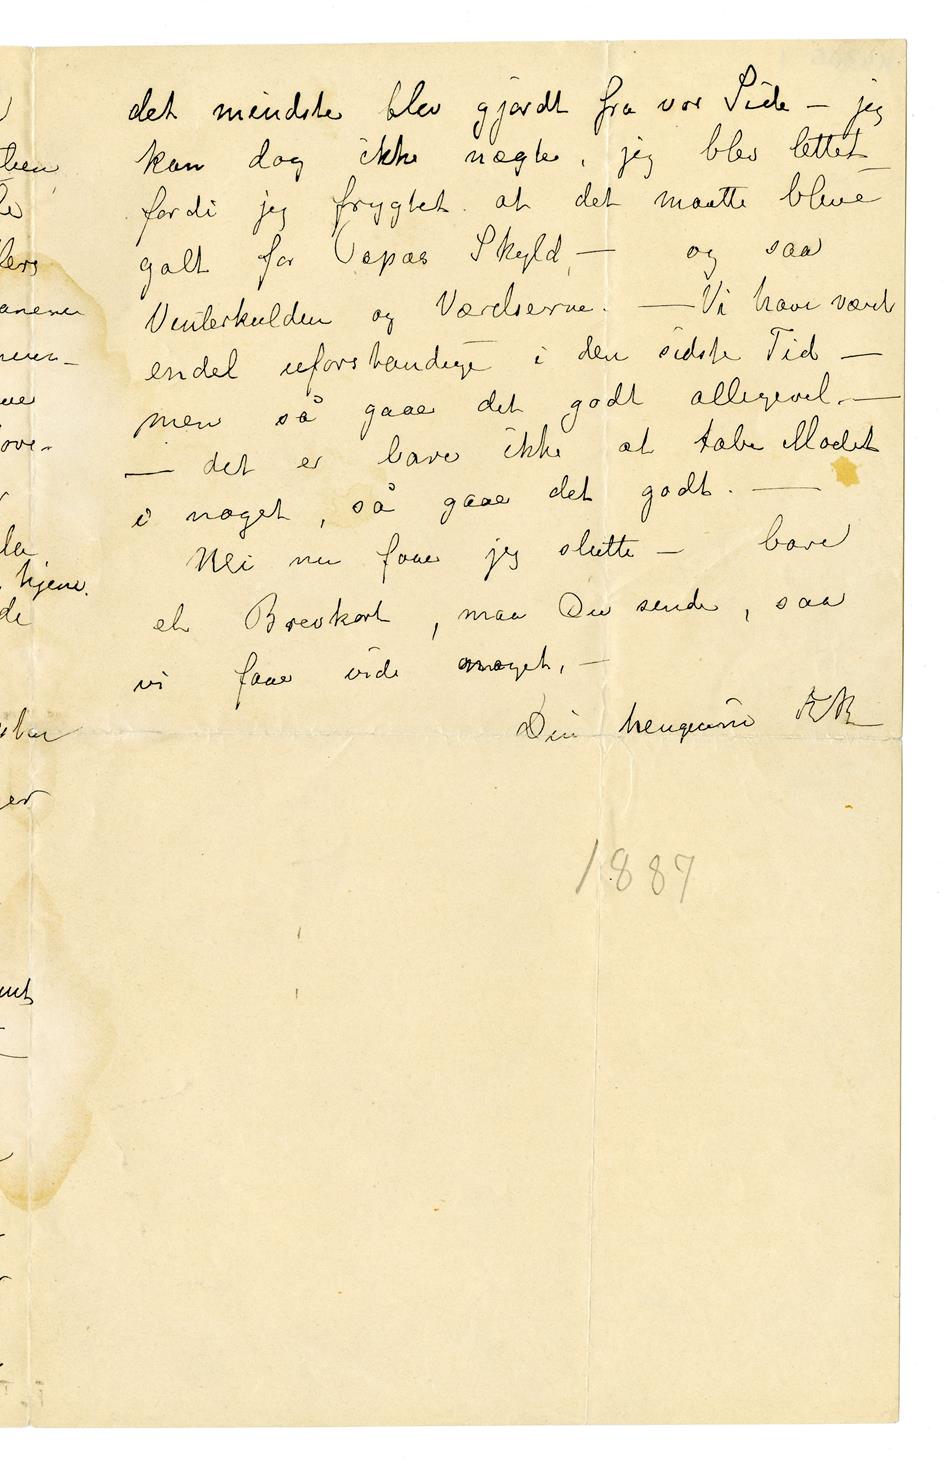 det mindste blev gjordt fra vor Side — jeg
kan dog ikke nægte, jeg blev lettet
fordi jeg frygtet at det maatte blive
galt for Papas Skyld, — og saa
Vinterkulden og Værelserne. — Vi have været
endel uforstandige i den sidste Tid —
men så gaae det godt allegevel. —
— det er bare ikke at tabe Modet
i noget, så gaae det godt. —
Nei nu faae jeg slutte — bare
et Brevkort, maa Du sende, saa
vi faae vide noget, —
Din hengivne
1887
hjem.